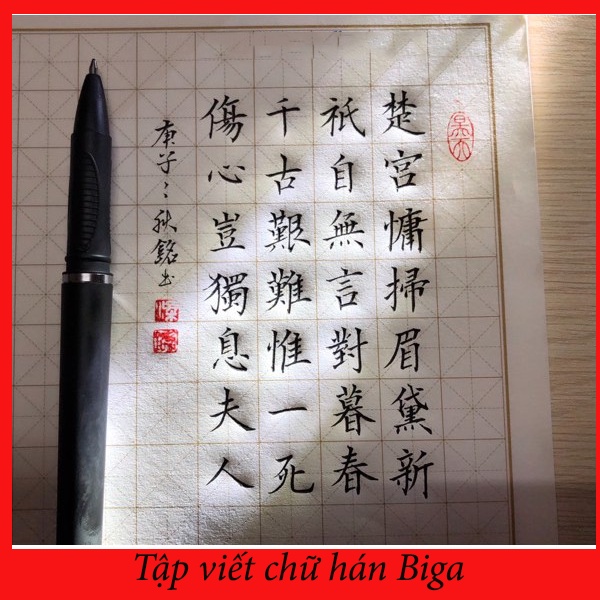 楚宮慵掃眉黛新
祇自無言對暮春
千古艱難惟一死
傷心豈獨息夫人
庚子之秋銘书
Tập viết chữ hán Biga